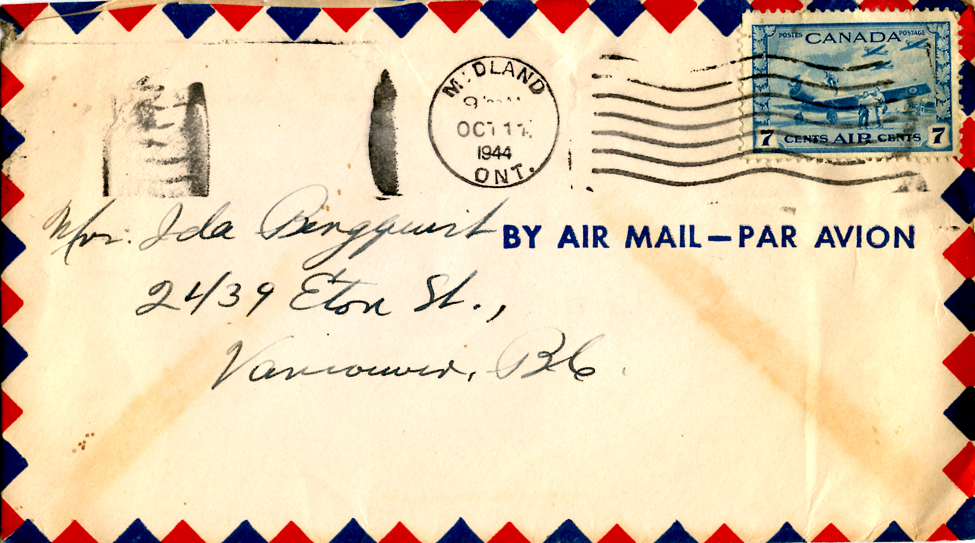 POSTES CANADA POSTAGE
7 CENTS AIR CENTS 7
MIDLAND
OCT 11
1944
ONT.
BY AIR MAIL—PAR AVION
Mrs. Ida Bergquist
2439 Eton St.,
Vancouver, B.C.